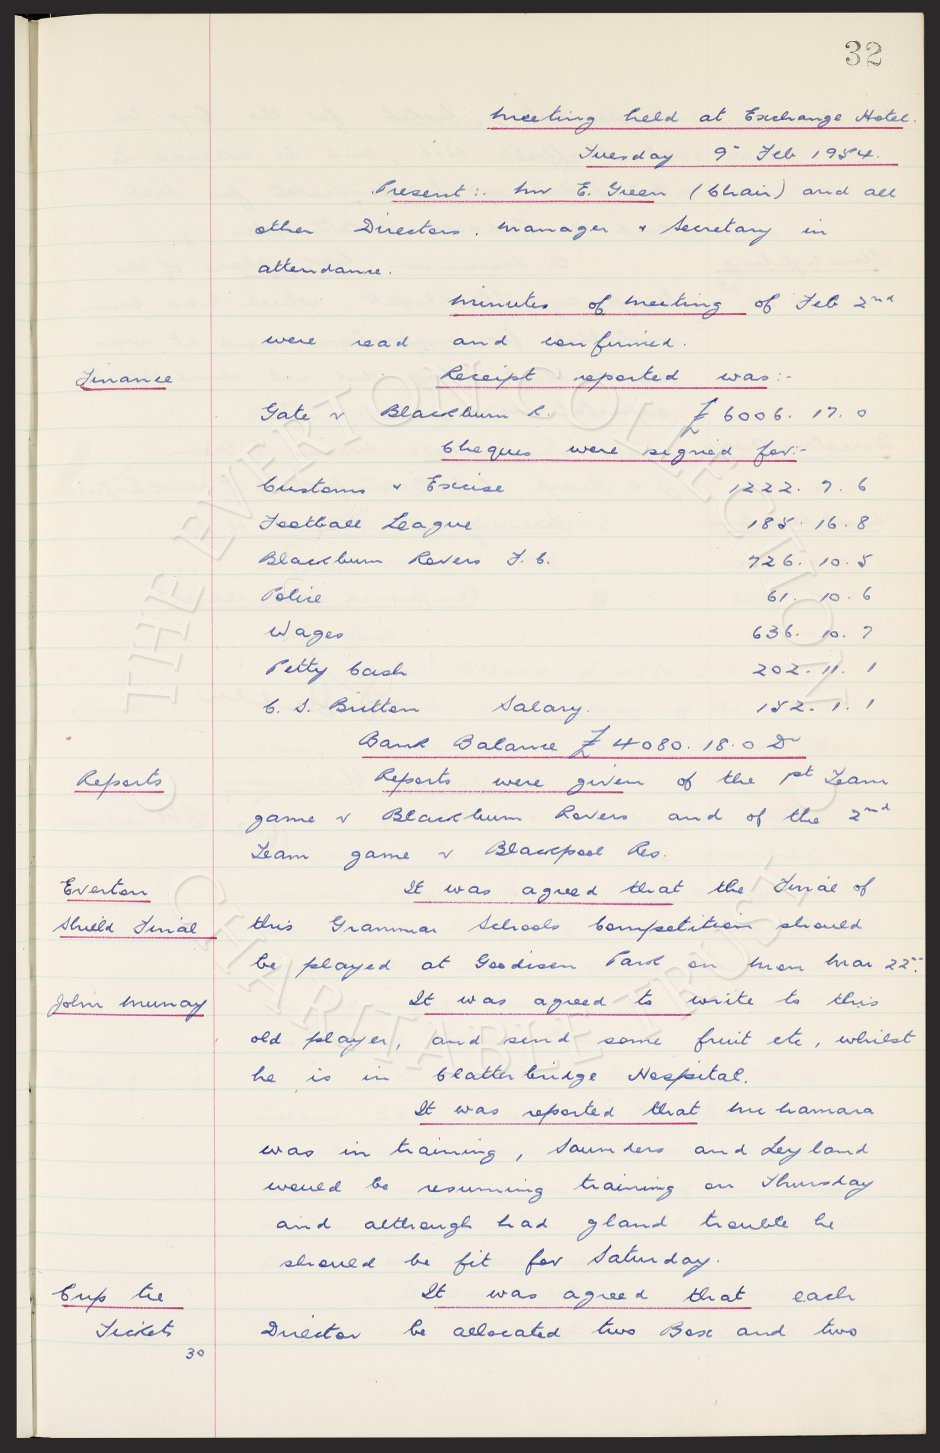 32
Meeting held at Exchange Hotel.
Tuesday 9" Feb 1954.
Present:. Mr E. Green (Chair) and all
other Directors. Manager & Secretary in
attendance.
Minutes of meeting of Feb 2nd
were read and confirmed.
Finance
Receipt reported was:-
Gate v Blackburn R. £6006. 17. 0
Cheques were signed for:-
Customs & Excise 1222. 7. 6
Football League 185. 16. 8
Blackburn Rovers F.C. 726. 10. 5
Police 61. 10. 6
Wages 636. 10. 7
Petty Cash 202. 11. 1
C. S. Britton Salary. 152. 1. 1
Bank Balance £4080. 18. 0 Dr
Reports Reports were given of the 1st Team
game v Blackburn Rovers and of the 2nd
Team game v Blackpool Res.
Everton It was agreed that the Final of
Shield Final this Grammar Schools Competition should
be played at Goodison Park on Mon Mar 22".
John Murray It was agreed to write to this
old player, and send some fruit etc, whilst
he is in Clatterbridge Hospital.
It was reported that McNamara
was in training, Saunders and Leyland
would be resuming training on Thursday
and although had gland trouble he
should be fit for Saturday.
Cup tie It was agreed that each
Tickets Director be allocated two Box and two
30
THE EVERTON COLLECTION
CHARITABLE TRUST